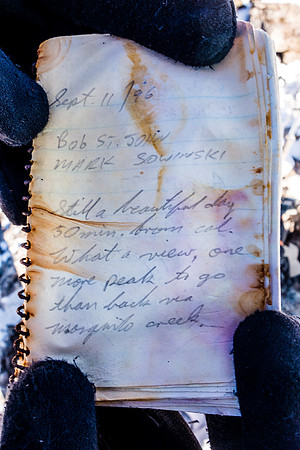 Sept. 11 /96
BOB ST. JOHN
MARK SOWINSKI
Still a beautiful day
50 min. from cal.
What a view, one
more peak to go
than back via
mosquito creek.